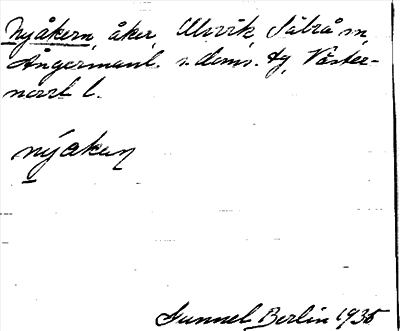 Nyåkern, åker, Ulvvik, Säbrå sn,
Ångermanl. s. doms. tg, Väster-
norrl l.
nýakeɳ
Gunnel Berlin 1935